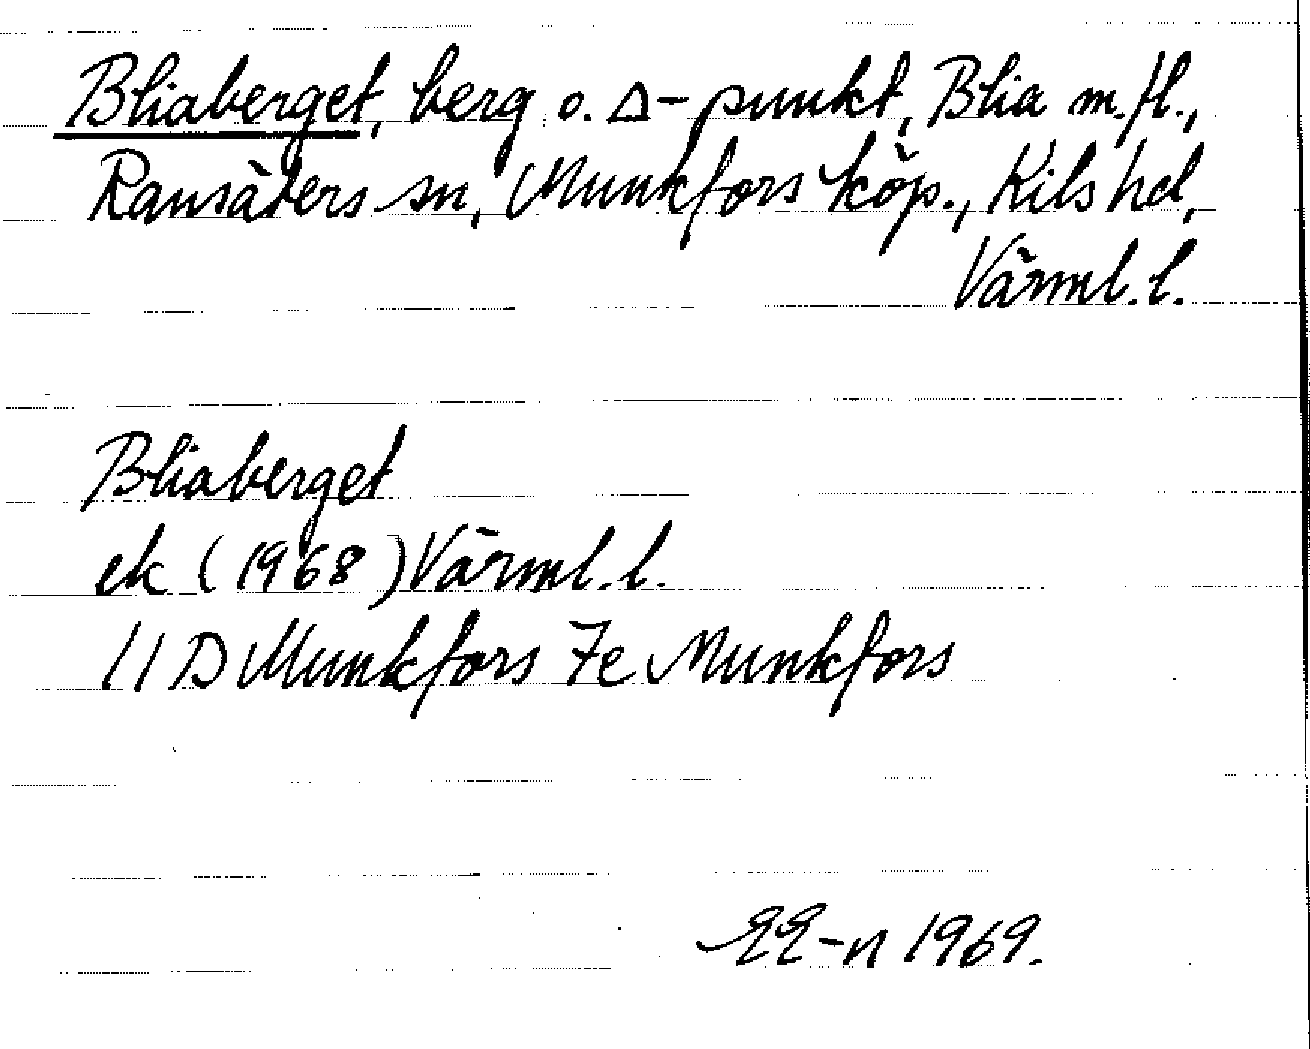 Bliaberget, berg o. △-punkt, Blia m.fl.,
Ransäters sn, Munkfors köp., Kils hd,
Värml. l.
Bliaberget
ek (1968) Värml. l.
11 D Munkfors 7e Munkfors
EE-n 1969.